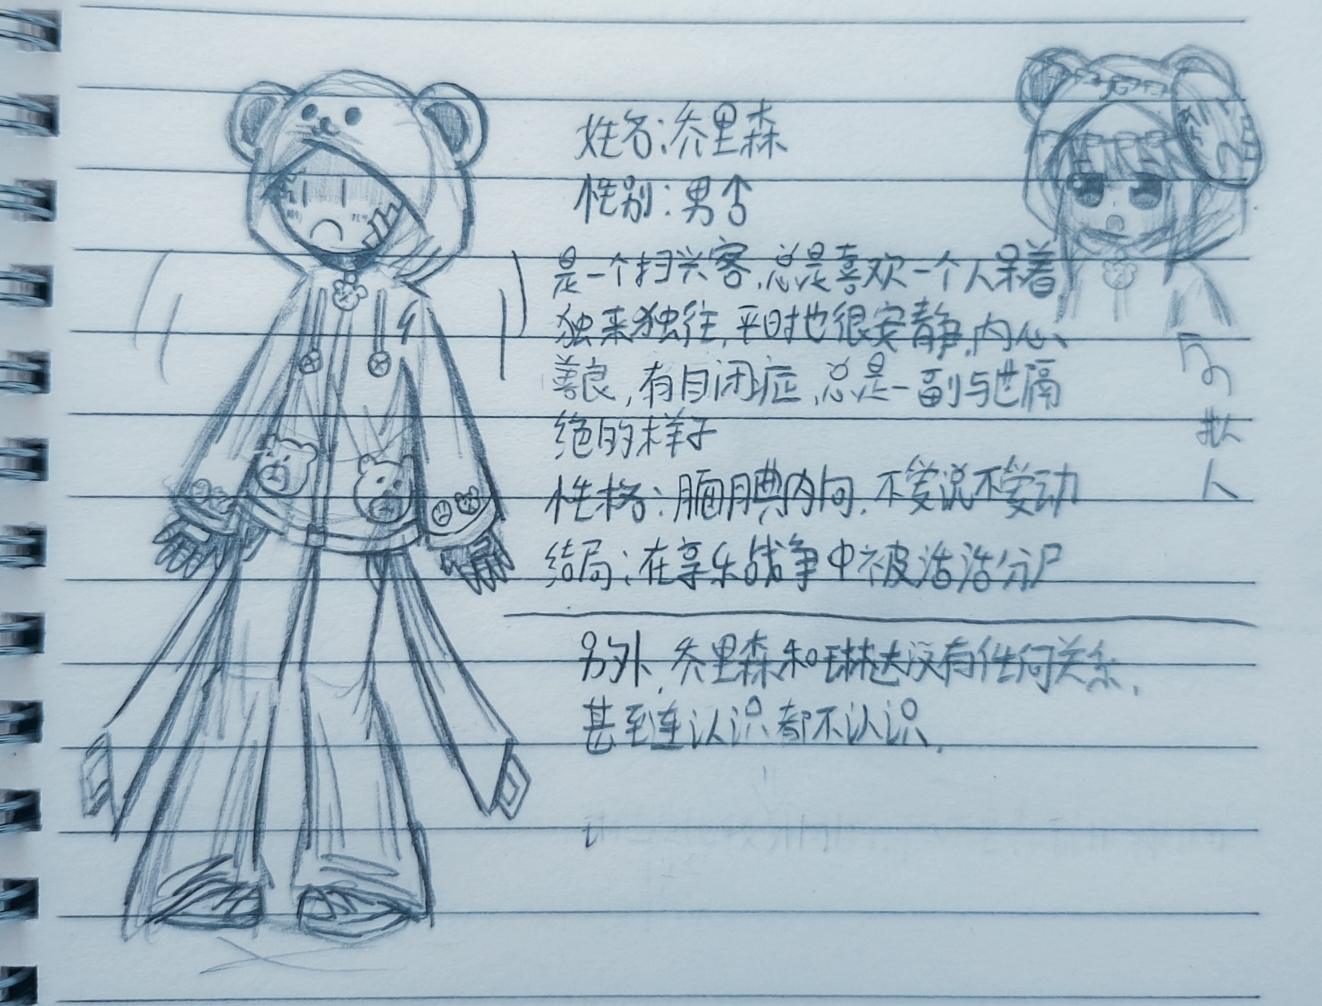 姓名:乔里森
性别:男♂
是一个扫兴客,总是喜欢一个人呆着
独来独往,平时也很安静,内心
善良,有自闭症,总是一副与世隔
绝的样子
性格:腼腆内向,不爱说不爱动
结局:在享乐战争中被活活分尸
另外,乔里森和琳达没有任何关系,
甚至连认识都不认识.
拟
人